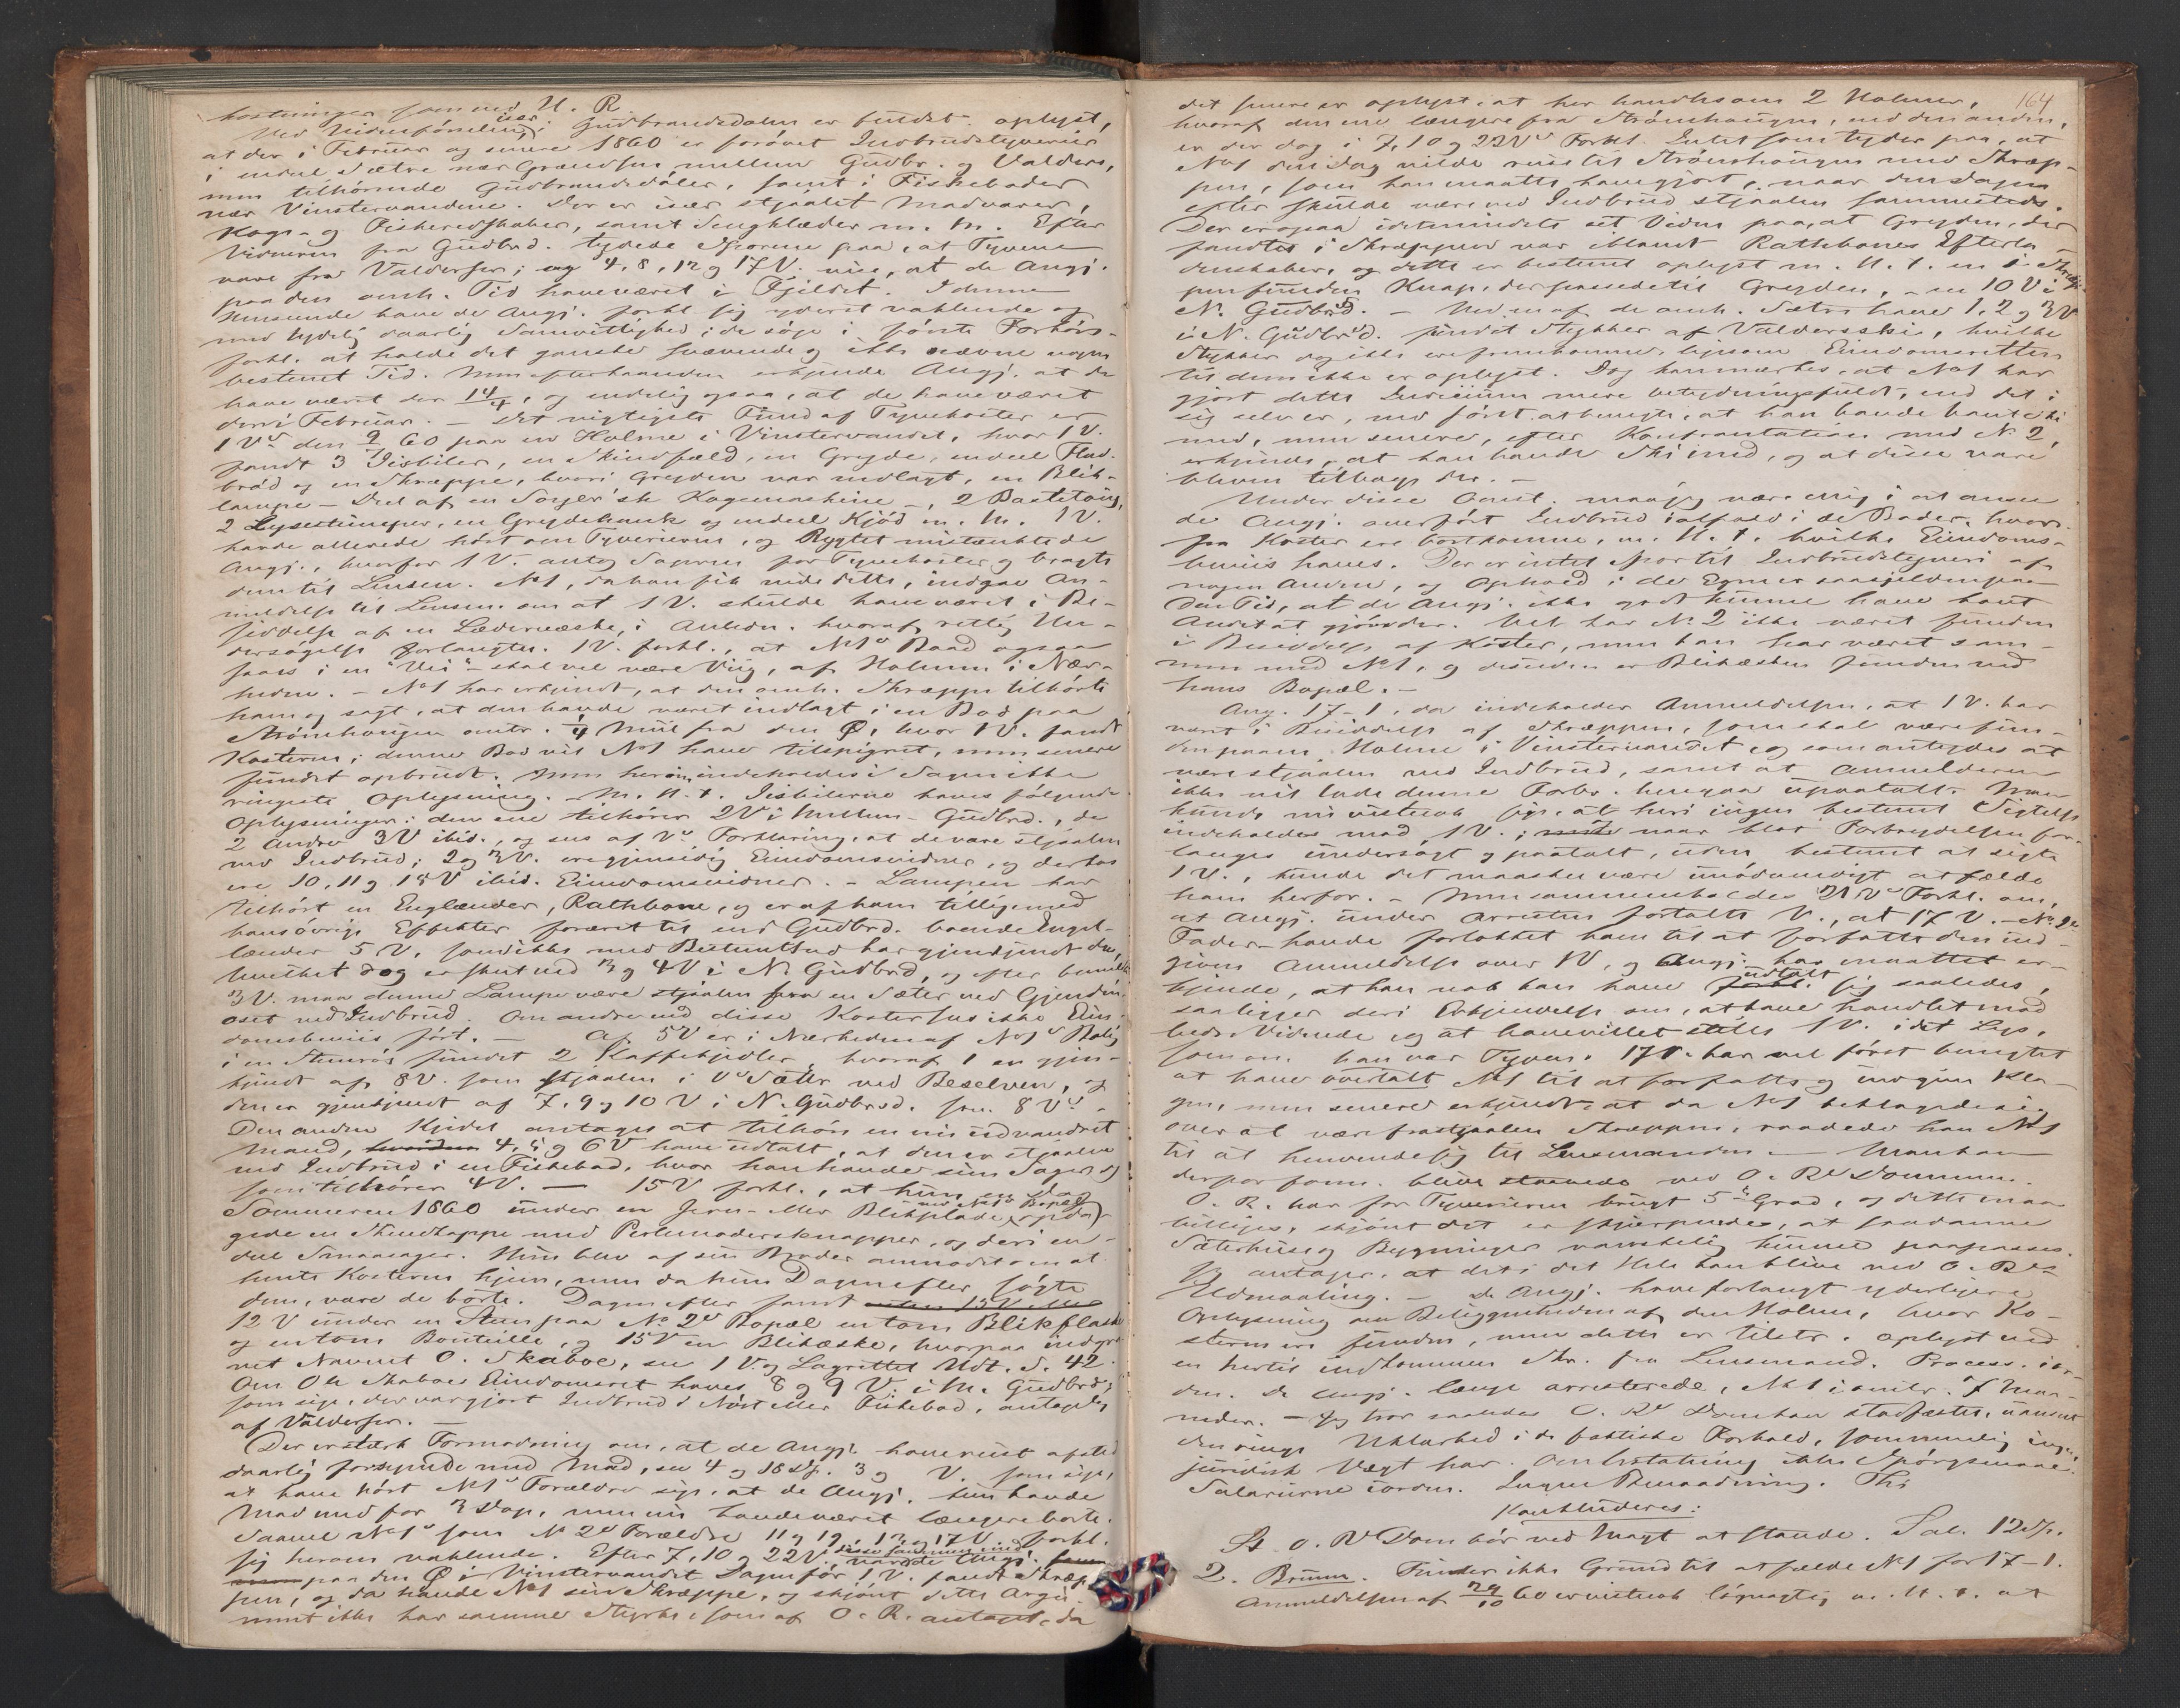 kostninger som ved U. R.
Ved Vidneførsel især i Gudbrandsdalen er fuldst. oplyst,
at der i Februar og senere 1860 er forøvet Indbrudstyverier
i endeel Sætre nær Grændsen mellem Gudbr. og Valders,
men tilhørende Gudbrandsdøler, samt i Fiskeboder
nær Vinstervandene. Der er især stjaalet Madvarer,
Koge- og Fiskeredskaber, samt Sengklæder m. m. Efter
Vidnerne fra Gudbrd. tydede Sporene paa, at Tyvene
vare fra Valders; og 4, 8, 12 og 17 V. vise, at de Angj.
paa den omh. Tid have været i Fjeldet. I denne
Henseende have de Angj. forkl. sig yderst vaklende og
med tydelig daarlig Samvittighed; de søge i første Forhørs-
forkl. at holde det ganske svævende og ikke nævne nogen
bestemt Tid. Men efterhaanden erkjende Angj. at de
have været der 14/4, og endelig ogsaa, at de have været
der i Februar. – Det vigtigste Fund af Tyvekoster er
1 Vs den 9/ 60 paa en Holme i Vinstervandet, hvor 1 V.
fandt 3 Isbiler, en Skindfæld, en Gryde, endeel Flad-
brød og en Skræppe, hvori Gryden var indlagt, en Blik-
lampe – Deel af en Soyer'sk Kogemaskine –, 2 Bastetoug,
2 Lysestumper, en Grydehank og endeel Kjød m. m. 1 V.
havde allerede hørt om Tyverierne, og Rygtet mistænkte de
Angj., hvorfor 1 V. antog Sagerne for Tyvekoster og bragte
dem til Lensm. No 1, da han fik vide dette, indgav An-
meldelse til Lensm. om at 1 V. skulde have været i Be-
siddelse af en Lædervæske, i Anledn. hvoraf retlig Un-
dersøgelse forlangtes. 1 V. forkl., at No 1s Baad ogsaa
saaes i en "Vei" – skal vel være Viig, af Holmen i Nær-
heden. – No 1 har erkjendt, at den omh. Skræppe tilhørte
ham og sagt, at den havde været indlagt i en Bod paa
Strømhougen omtr. 1/4 Miil fra den Ø, hvor 1 V. fandt
Kosterne; denne Bod vil No 1 have tilspigret, men senere
fundet opbrudt. Men herom indeholdes i Sagen ikke
ringeste Oplysning. – M. H. t. Isbilerne haves følgende
Oplysninger: den ene tilhører 2 V i Mellem-Gudbrd., de
2 andre 3 V ibid., og sees af Vs Forklaring, at de vare stjaalne
ved Indbrud; 2 og 3 V. ere gjensidig Eiendomsvidner, og derhos
ere 10, 11 og 18 V ibid. Eiendomsvidner. – Lampen har
tilhørt en Englænder, Rathbone, og er af ham tilligemed
hans øvrige Effekter foræret til en i Gudbrd. boende Engel-
lænder 5 V., som ikke med Bestemthed har gjenkjendt den,
hvilket dog er skeet ved 3 og 4 V i N. Gudbrd, og efter bemeldte
3 V. maa denne Lampe være stjaalen fra en Sæter ved Gjendin-
oset ved Indbrud. Om andre end disse Koster sees ikke Eien-
domsbeviis ført. – Af 5 V er i Nærheden af No 1s Bolig
i en Steenrøs fundet 2 Kaffekjedler, hvoraf 1 er gjen-
kjendt af 8 V. som stjaalen i Vs Sæter ved Beselven, og
den er gjenkjendt af 7, 9 og 10 V i N. Gudbrd. som 8 Vs. –
Den anden Kjedel antages at tilhøre en nu udvandret
Mand, 4, 5 og 6 V have udtalt, at den er stjaalen
ved Indbrud i en Fiskebod, hvor han havde sine Sager og
som tilhører 4 V. – 15 V forkl., at hun en Dag
Sommeren 1860 under en Jern- eller Blikplade ved No 1s Bopæl opda-
gede en Skindkappe med Perlemodersknapper, og deri en-
deel Smaasager. Hun blev af sin Broder anmodet om at
hente Kosterne hjem, men da hun Dagen efter søgte
dem, vare de borte. Dagen efter fandt
12 V under en Steen paa No 2s Bopæl en tom Blikflaske
og en tom Bouteille, og 15 V en Blikæske, hvorpaa indgra-
vet Navnet O. Skaboe, see 1 V. og Lagrettet Udt. S. 42.
Om Ole Skaboes Eiendomsret haves 8 og 9 V. i M. Gudbrd.,
som sige, der var gjort Indbrud i Nøst eller Fiskebod, antagelig
af Valderser. –
Der er stærk Formodning om, at de Angj. have reist afsted
daarlig forsynede med Mad, see 4 og 18 . 3 og V. som sige,
at have hørt No 1s Forældre sige, at de Angj. kun havde
Mad med for 3 Dage, men nu havde været længere borte.
Saavel No 1s som No 2s Forældre 11 og 19, 13 og 17 V. forkl.
sig herom vaklende. Efter 7, 10 og 22 V. i disse sammen med vare de Angj.
paa den Ø i Vinstervandet Dagen før 1 V. fandt Skræp-
pen, og da havde No 1 sin Skræppe, og skjønt dette Argu-
ment ikke har samme Styrke som af O. R. antaget, da
164
det senere er oplyst, at her handles om 2 Holmer,
hvoraf den ene længere fra Strømhougen, end den anden,
er der dog i 7, 10 og 22 Vs Forkl. Intet som tyder paa, at
No 1 den Dag vilde reise til Strømhougen med Skræp-
pen, som han maatte have gjort, naar den Dagen
efter skulde være ved Indbrud stjaalen sammesteds.
Der er ogsaa i det mindste et Vidne paa, at Gryden, der
fandtes i Skræppen var blandt Rathbones Efterla-
denskaber, og dette er bestemt oplyst m. H. t. en i Skræp-
pen funden Knap, der passede til Gryden, – see 10 V i
N. Gudbrd. – Ved een af de omh. Sætre have 1, 2 og 3 V
i N. Gudbrd. fundet Stykker af Valdersski, hvilke
Stykker dog ikke ere fremkomne, ligesom Eiendomsretten
til dem ikke er oplyst. Dog bemærkes, at No 1 har
gjort dette Indicium mere betydningsfuldt, end det i
sig selv er, ved først at benægte, at han havde havt Ski
med, men senere, efter Konfrontation med No 2,
erkjende, at han havde Ski med, og at disse vare
bleven tilbage der. –
Under disse Omst. maa jeg være enig i at ansee
de Angj. overført Indbrud ialfald i de Boder, hvor-
fra Koster ere bortkomne, m. H. t. hvilke Eiendoms-
beviis haves. Der er intet Spor til Indbrudstyveri af
nogen Anden, og Ophold i de Egne er saa sjelden paa
den Tid, at de Angj. ikke godt kunne have havt
Andet at gjøre der. Vel har No 2 ikke været funden
i Besiddelse af Koster, men han har været sam-
men med No 1, og desuden er Blikæsken funden ved
hans Bopæl. –
Ang. 17–1, da indeholder Anmeldelsen, at 1 V. har
været i Besiddelse af Skræppen, som skal være fun-
den paa en Holme i Vinstervandet, og som antydes at
være stjaalen ved Indbrud, samt at Anmelderen
ikke vil lade denne Forbr. hengaa upaatalt. Man
kunde nu vistnok sige, at heri ingen bestemt Sigtelse
indeholdes mod 1 V.; naar blot Forbrydelsen for-
langes undersøgt og paatalt, uden bestemt at sigte
1 V., kunde det maaskee være unødvendigt at fælde
ham herfor. – Men sammenholdes 21 Vs Forkl. om,
at Angj. under Arresten fortalte V., at 17 V. – No 2s
Fader – havde forlokket ham til at forfatte den ind-
givne Anmeldelse over 1 V, og Angj. har maattet er-
kjende, at han nok kan have udtalt sig saaledes,
saa ligger deri Erkjendelse om, at have handlet mod
bedre Vidende og at have villet stille 1 V. i det Lys,
som om han var Tyven. 17 V. har vel først benægtet
at have overtalt No 1 til at forfatte og indgive Kla-
gen, men senere erkjendt, at da No 1 beklagede sig
over at være frastjaalen Skræppen, raadede han No 1
til at henvende sig til Lensmanden. – Man kan
derfor form. blive staaende ved O. Rs Dommen.
O. R. har for Tyverierne brugt 5te Grad, og dette maa
billiges, skjønt det er skjærpende, at saadanne
Sæterhuse og Bygninger vanskelig kunne paapasses.
Jeg antager, at det i det Hele kan blive ved O. Rs
Udmaaling. – De Angj. have forlangt yderligere
Oplysning om Beliggenheden af den Holme, hvor Ko-
sterne ere fundne, men dette er tilstr. oplyst ved
en hertil indkommen Skr. fra Lensmand. Process. i or-
den. De Angj. længe arresterede, No 1 i omtr. 7 Maa-
neder. – Jeg tror saaledes O. Rs Dom kan stadfæstes, uanseet
den ringe Uklarhed i de faktiske Forhold, som nemlig ingen
juridisk Vægt har. Om Erstatning ikke Spørgsmaal.
Salarierne i orden. Ingen Benaadning. Thi
Konkluderes:
At O. Rs Dom bør ved Magt at stande. Sal. 12 Sp.
2. Bruun. Finder ikke Grund til at fælde No 1 for 17–1.
Anmeldelsen af 29/10 60 er vistnok løgnagtig m. H. t. at